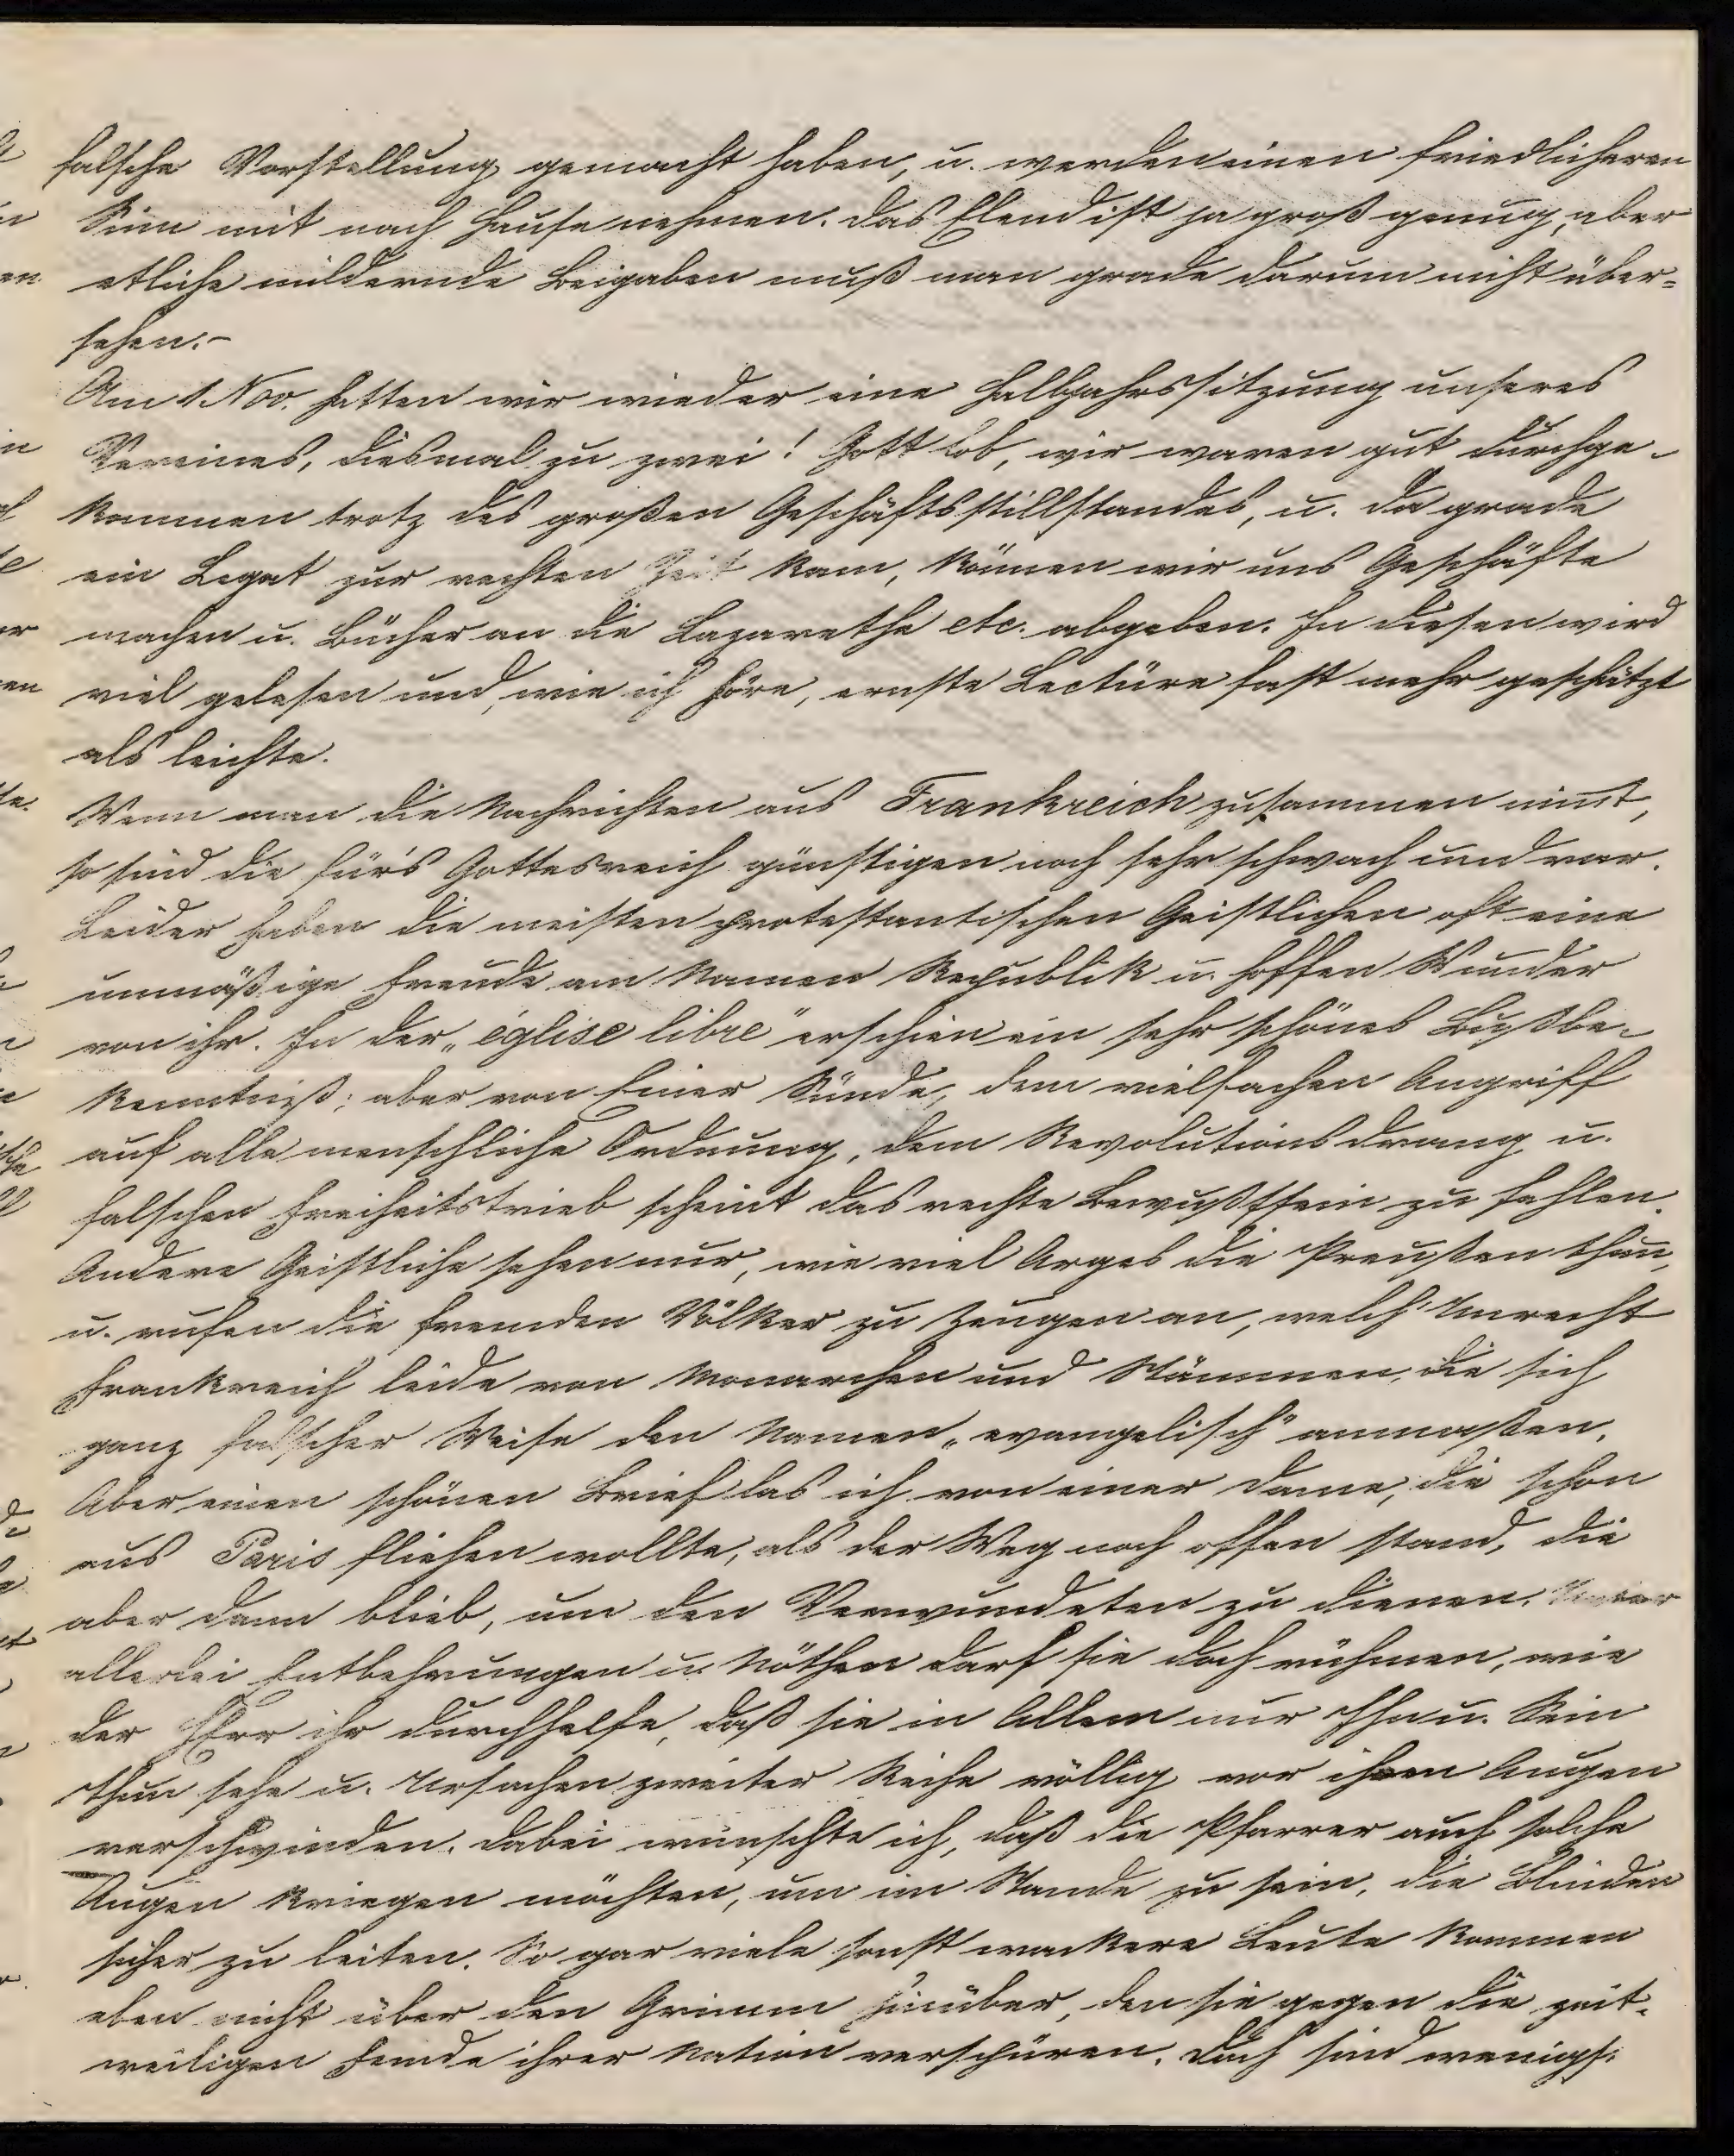 falsche Vorstellung gemacht haben, u. werden einen friedlicheren
Sinn mit nach Hause nehmen. Das Elend ist ja groß genug, aber
etliche mildernde Beigaben muß man grade darum nicht über-
sehen.-
Am 1 Nov. hatten wir wieder eine Halbjahrssitzung unseres
Vereines, diesmal zu zwei! Gott Lob, wir waren gut durchge-
kommen trotz des großen Geschäftsstillstandes, u. da grade
ein Legat zur rechten Zeit kam, können wir uns Geschäfte
machen u. Bücher an die Lazarethe etc. abgeben. In diesen wird
viel gelesen und, wie ich höre, ernste Lectüre fast mehr geschätzt
als leichte.
Wenn man die Nachrichten aus Frankreich zusammen nimt,
so sind die für's Gottesreich günstigen noch sehr schwach und rar.
Leider haben die meisten protestantischen Geistlichen oft eine
unmäßige Freude am Namen Republik u. hoffen Wunder
von ihr. In der „église libre" erschien ein sehr schönes Bußbe-
kenntniß; aber von Einer Sünde, dem vielfachen Angriff
auf alle menschliche Ordnung, dem Revolutionsdrang u.
falschen Freiheitstrieb scheint das rechte Bewußtsein zu fehlen.
Andere Geistliche sehen nur, wie viel Arges die Preußen thun,
u. rufen die fremden Völker zu Zeugen an, welch' Unrecht
Frankreich leide von Monarchen und Stämmen, die sich
ganz falscher Weise den Namen „evangelisch" anmaßen.
Aber einen schönen Brief las ich von einer Dame, die schon
aus Paris fliehen wollte, als der Weg noch offen stand, die
aber dann blieb, um den Verwundeten zu dienen. Unter
allerlei Entbehrungen u. Nöthen darf sie doch rühmen, wie
der HErr ihr durchhelfe, daß sie in Allem nur Ihn u. Sein
Thun sehe u. Ursachen zweiter Reihe völlig vor ihren Augen
verschwinden. Dabei wünschte ich, daß die Pfarrer auch solche
Augen kriegen möchten, um im Stande zu sein, die Blinden
sicher zu leiten. So gar viele sonst wackere Leute kommen
eben nicht über den Grimm hinüber, den sie gegen die zeit-
weiligen Feinde ihrer Nation verschüren. Doch sind wenigs-